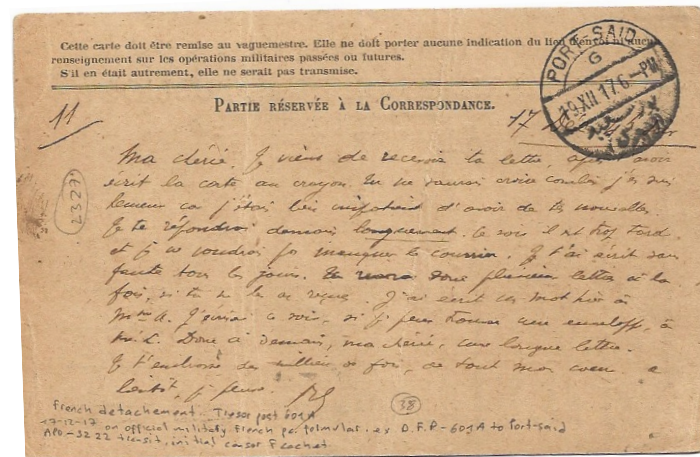 Cette carte doit être remise au vaguemestre. Elle ne doit porter aucune indication du lieu d'envoi ni aucun
renseignement sur les opérations militaires passées ou futures.
S'il en était autrement, elle ne serait pas transmise.
PORT-SAID
G
19 XII 17 6-PM
PARTIE RÉSERVÉE À LA CORRESPONDANCE.
11
17
Ma chérie. Je viens de recevoir ta lettre, après avoir
écrit la carte au crayon. Tu ne saurais croire combien j'en suis
heureux car j'étais bien impatient d'avoir de tes nouvelles.
Je te répondrai demain longuement. Ce soir il est trop tard
et je ne voudrais pas manquer le courrier. Je t'ai écrit sans
faute tous les jours. Tu auras donc plusieurs lettres à la
fois, si tu ne les as reçues. J'ai écrit un mot hier à
Mme A. J'écrirai ce soir, si je peux trouver une enveloppe, à
L. Donc à demain, ma chérie, une longue lettre.
Je t'embrasse des milliers de fois, de tout mon coeur. à
bientôt, je pense.
2327
38
French detachement. Tresor post 601A
17-12-17 on official military French p.c. ex D.F.P-601A to Port-said
APO-SZ 22 transit, initial censor